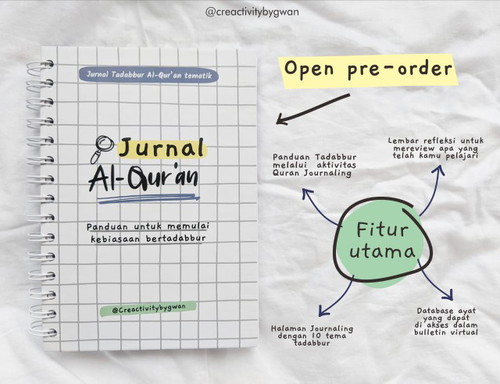 @creactivitybygwan
Jurnal Tadabbur Al-Qur'an tematik
Jurnal
Al-Qur'an
Panduan untuk memulai
kebiasaan bertadabbur
@Creactivitybygwan
Open pre-order
Panduan Tadabbur
melalui aktivitas
Quran Journaling
Lembar refleksi untuk
mereview apa yang
telah kamu pelajari
Fitur
utama
Halaman Journaling
dengan 10 tema
tadabbur
Database ayat
yang dapat
di akses dalam
bulletin virtual